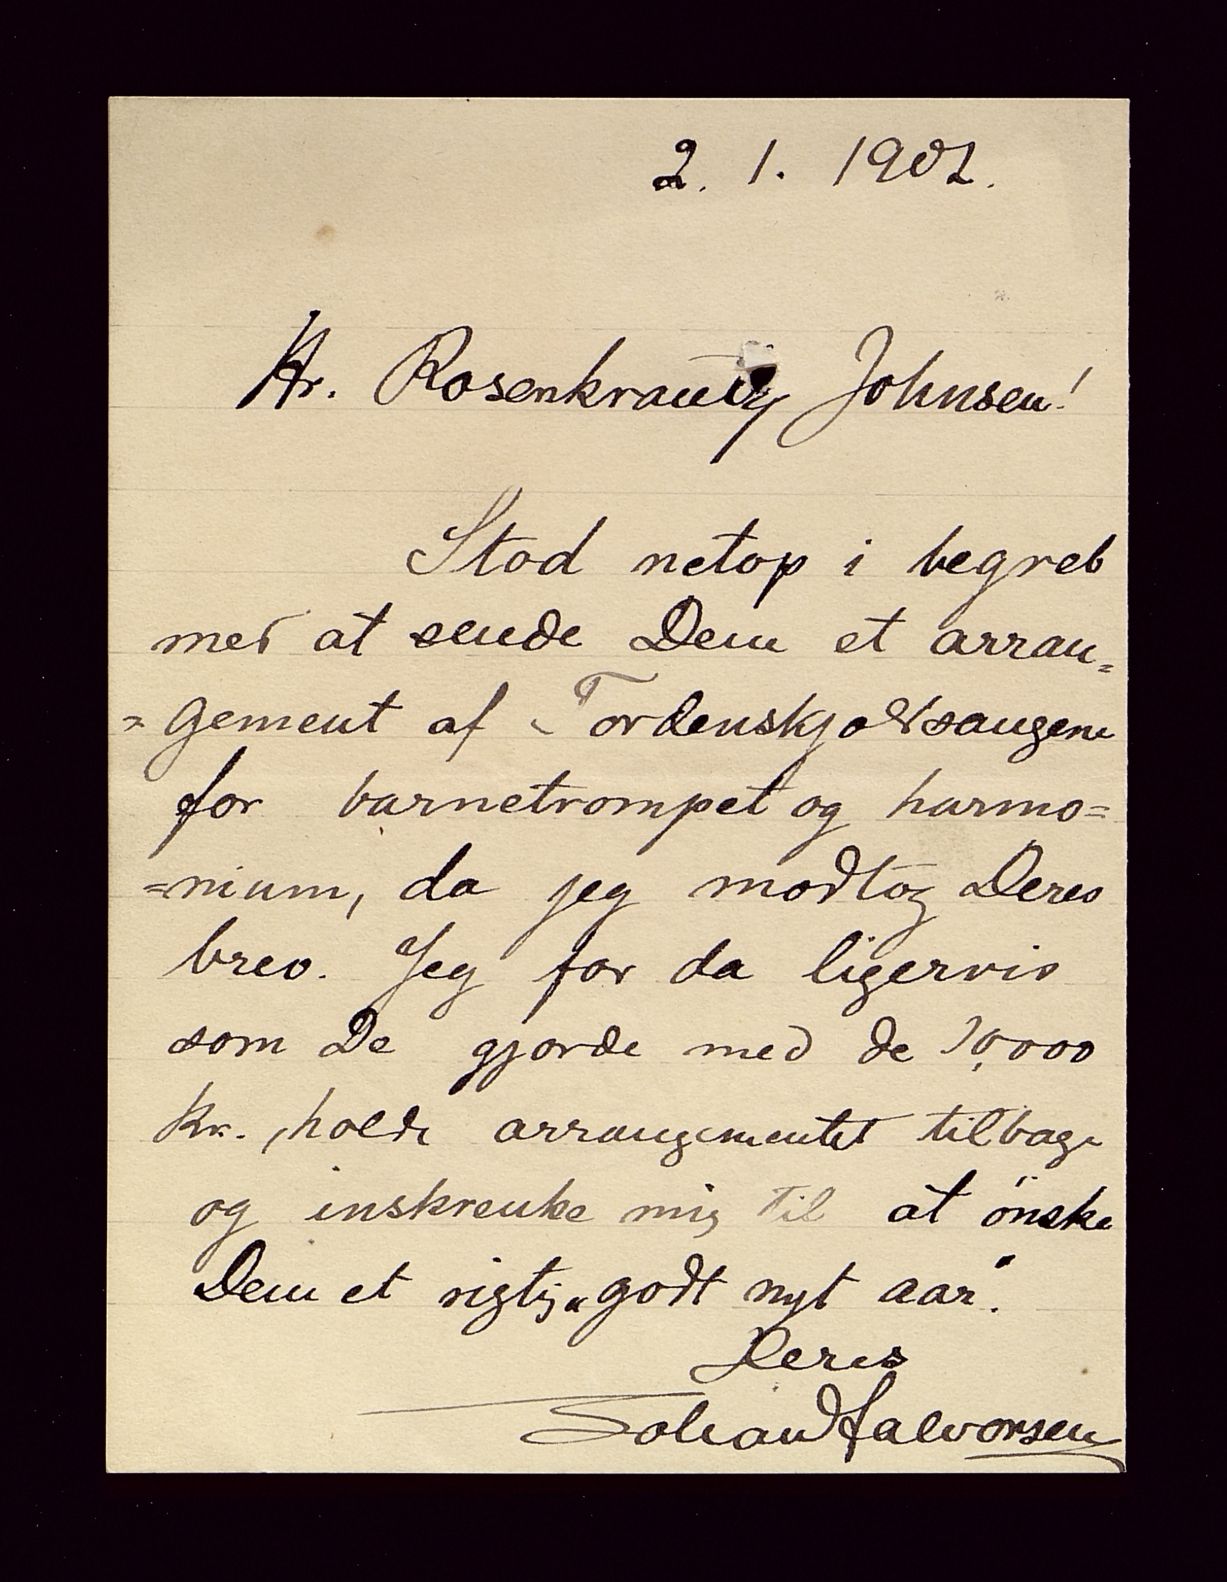 2. 1. 1902.
Hr. Rosenkrantz Johnsen!
Stod netop i begreb
med at sende Dem et arran=
=gement af Tordenskjoldsangene
for barnetrompet og harmo=
=nium, da jeg modtog Deres
brev. Jeg for da ligervis
som De gjorde med de 10,000
kr., holde arrangementet tilbage
og inskrenke mig til at önske
Dem et rigtig „godt nyt aar".
Deres
Johan Halvorsen